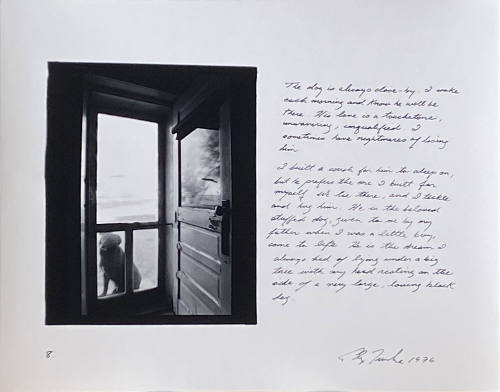 The dog is always close-by. I wake
each morning and know he will be
there. His love is a touchstone,
unwavering, unqualified. I
sometimes have nightmares of losing
him.
I built a couch for him to sleep on,
but he prefers the one I built for
myself. We lie there, and I tickle
and hug him. He is the beloved
stuffed dog, given to me by my
father when I was a little boy,
come to life. He is the dream I
always had of lying under a big
tree with my head resting on the
side of a very large, loving black
dog.
8
1976